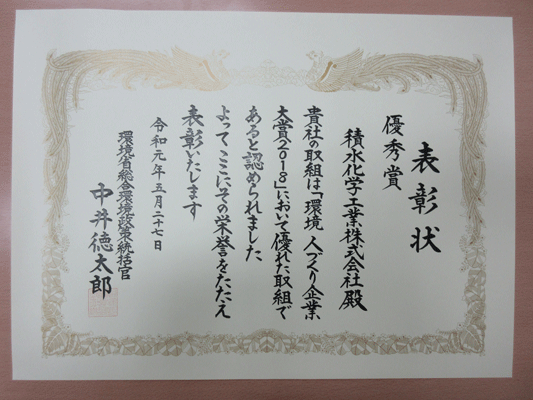 表彰状
優秀賞
積水化学工業株式会社殿
貴社の取組は「環境 人づくり企業
大賞2018」において優れた取組で
あると認められました
よってここにその栄誉をたたえ
表彰いたします
令和元年五月二十七日
環境省総合環境政策統括官
中井徳太郎